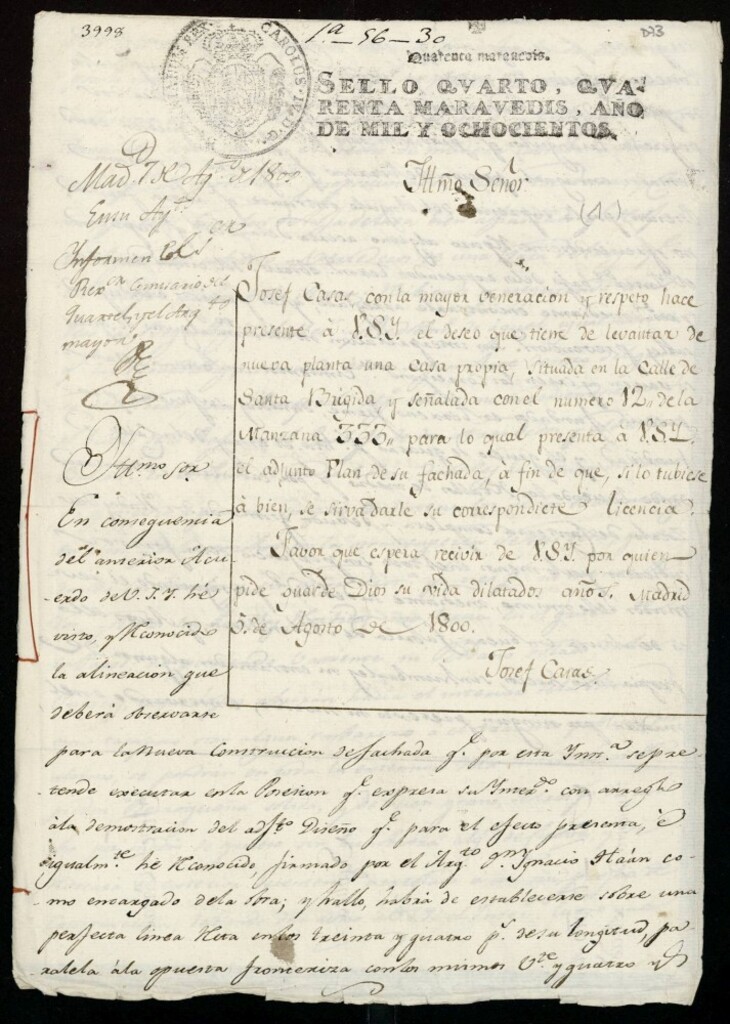 3998
1ª-56-30
CAROLUS IV D G
Quarenta maravedis.
SELLO QVARTO, QVA-
RENTA MARAVEDIS, AÑO
DE MIL Y OCHOCIENTOS.
Mad.d 7 de Ag.to de 1800
En su Ay.to
Informen los S.res
Rex.or Comisario del
Quartel y el Arq.to
mayor
Ill̃mo Señor
(1)
Josef Casas, con la mayor veneracion y respeto hace
presente à V.S.Y. el deseo que tiene de levantar de
nueva planta una casa propia, situada en la Calle de
Santa Brigida, y señalada con el numero 12,, de la
Manzana 333,, para lo qual presenta à V.S.Y.
el adjunto Plan de su fachada, à fin de que, si lo tubiese
à bien, se sirva darle su correspondiete licencia.
Favor que espera recivir de V.S.Y. por quien
pide guarde Dios su vida dilatados años. Madrid
5. de Agosto de 1800.
Josef Casas.
Yll.mo S.or
En consequencia
del anterior Acu-
erdo de V.S.Y. hé
visto, y reconocido
la alineacion que
deberá observarse
para la nueva Construccion de fachada q.e por esta Ynst.a se pre-
tende executar en la Posesion q.e expresa su Ynter.do con arreglo
à la demostracion del adj.to Diseño q.e para el efecto presenta, è
igualm.te hé reconocido, firmado por el Arq.to D.n Ignacio Haàn co-
mo encargado de la obra; y hallo, habrá de establecerse sobre una
perfecta linea recta en los treinta y quatro p.s de su longitud, pa-
ralela à la opuesta fronteriza con los mismos y quatro